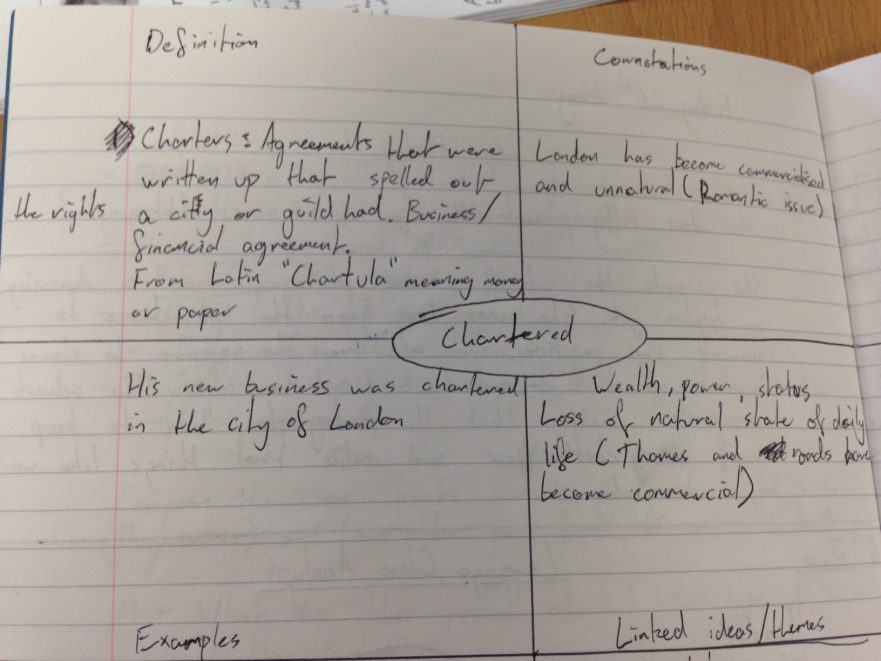 Definition
Charters: Agreements that were
written up that spelled out
the rights
a city or guild had. Business/
financial agreement.
From Latin "Chartula" meaning money
or paper
Connotations
London has become commercialised
and unnatural (Romantic issue)
Chartered
His new business was chartered
in the city of London
Examples
Wealth, power, status
Loss of natural state of daily
life (Thames and roads have
become commercial)
Linked ideas/themes